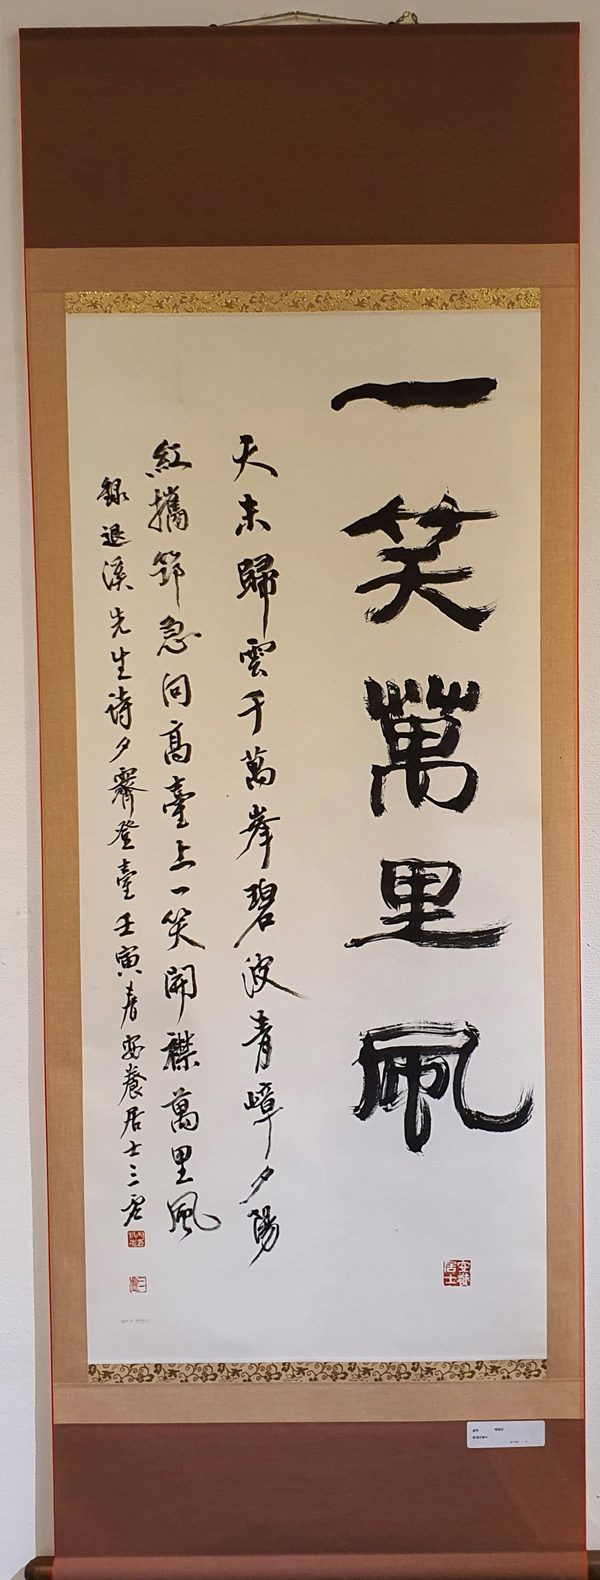 一笑萬里風
天末歸雲千萬峯碧波青嶂夕陽
紅攜筇急向高臺上一笑開襟萬里風
錄退溪先生詩夕霽登臺壬寅春安養居士三君
安養居士